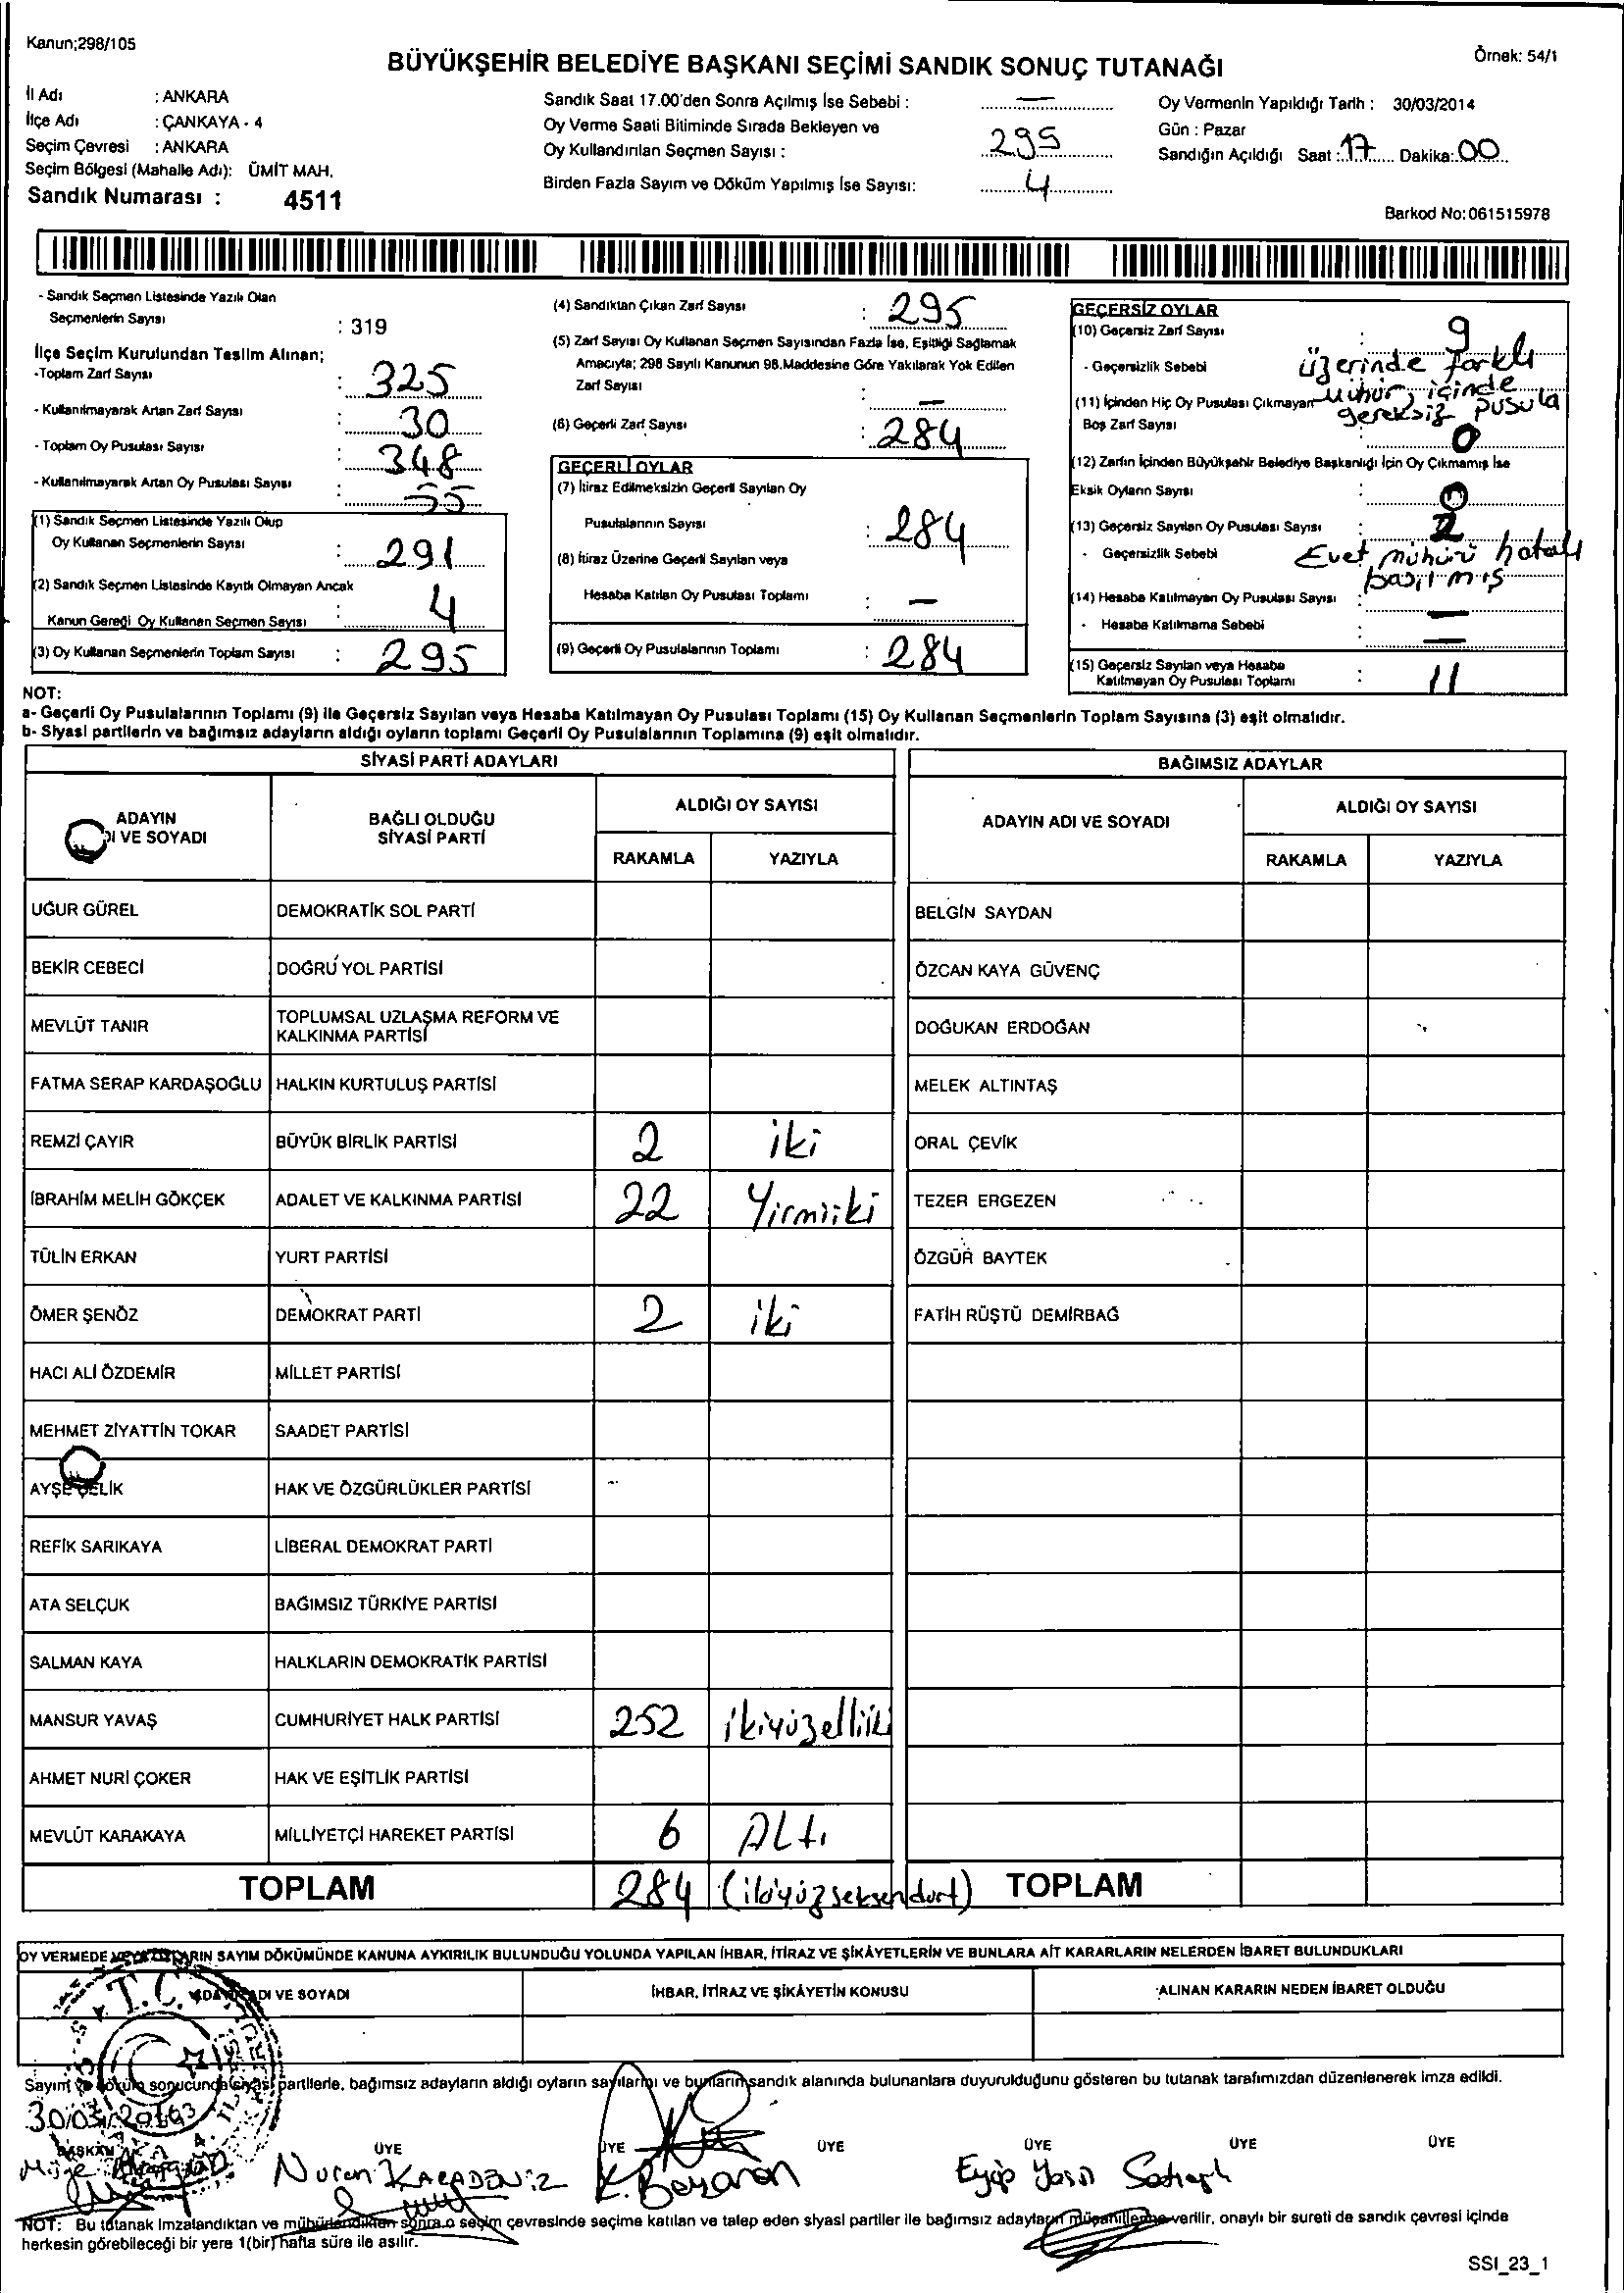 Kanun;298/105
Örnek: 54/1
BÜYÜKŞEHİR BELEDİYE BAŞKANI SEÇİMİ SANDIK SONUÇ TUTANAĞI
İl Adı : ANKARA
İlçe Adı : ÇANKAYA - 4
Seçim Çevresi : ANKARA
Seçim Bölgesi (Mahalle Adı): ÜMİT MAH.
Sandık Numarası : 4511
Sandık Saat 17.00'den Sonra Açılmış İse Sebebi : —
Oy Verme Saati Bitiminde Sırada Bekleyen ve
Oy Kullandırılan Seçmen Sayısı : 295
Birden Fazla Sayım ve Döküm Yapılmış İse Sayısı: 4
Oy Vermenin Yapıldığı Tarih : 30/03/2014
Gün : Pazar
Sandığın Açıldığı Saat : 17 Dakika: 00
Barkod No: 061515978
- Sandık Seçmen Listesinde Yazılı Olan
Seçmenlerin Sayısı : 319
İlçe Seçim Kurulundan Teslim Alınan;
-Toplam Zarf Sayısı : 325
- Kullanılmayarak Artan Zarf Sayısı : 30
- Toplam Oy Pusulası Sayısı : 348
- Kullanılmayarak Artan Oy Pusulası Sayısı : 55
(1) Sandık Seçmen Listesinde Yazılı Olup
Oy Kullanan Seçmenlerin Sayısı : 291
(2) Sandık Seçmen Listesinde Kayıtlı Olmayan Ancak
Kanun Gereği Oy Kullanan Seçmen Sayısı : 4
(3) Oy Kullanan Seçmenlerin Toplam Sayısı : 295
(4) Sandıktan Çıkan Zarf Sayısı : 295
(5) Zarf Sayısı Oy Kullanan Seçmen Sayısından Fazla İse, Eşitliği Sağlamak
Amacıyla; 298 Sayılı Kanunun 98.Maddesine Göre Yakılarak Yok Edilen
Zarf Sayısı : —
(6) Geçerli Zarf Sayısı : 284
GEÇERLİ OYLAR
(7) İtiraz Edilmeksizin Geçerli Sayılan Oy
Pusulalarının Sayısı : 284
(8) İtiraz Üzerine Geçerli Sayılan veya
Hesaba Katılan Oy Pusulası Toplamı : —
(9) Geçerli Oy Pusulalarının Toplamı : 284
GEÇERSİZ OYLAR
(10) Geçersiz Zarf Sayısı : 9
- Geçersizlik Sebebi : üzerinde farklı
mühür, içinde
gereksiz pusula
(11) İçinden Hiç Oy Pusulası Çıkmayan
Boş Zarf Sayısı 0
(12) Zarfın İçinden Büyükşehir Belediye Başkanlığı İçin Oy Çıkmamış İse
Eksik Oyların Sayısı : 0
(13) Geçersiz Sayılan Oy Pusulası Sayısı : 2
- Geçersizlik Sebebi Evet mühürü hatalı
basılmış
(14) Hesaba Katılmayan Oy Pusulası Sayısı : —
- Hesaba Katılmama Sebebi : —
(15) Geçersiz Sayılan veya Hesaba
Katılmayan Oy Pusulası Toplamı : 11
NOT:
a- Geçerli Oy Pusulalarının Toplamı (9) ile Geçersiz Sayılan veya Hesaba Katılmayan Oy Pusulası Toplamı (15) Oy Kullanan Seçmenlerin Toplam Sayısına (3) eşit olmalıdır.
b- Siyasi partilerin ve bağımsız adayların aldığı oyların toplamı Geçerli Oy Pusulalarının Toplamına (9) eşit olmalıdır.
SİYASİ PARTİ ADAYLARI
ADAYIN
VE SOYADI
BAĞLI OLDUĞU
SİYASİ PARTİ
ALDIĞI OY SAYISI
RAKAMLA YAZIYLA
UĞUR GÜREL DEMOKRATİK SOL PARTİ
BEKİR CEBECİ DOĞRU YOL PARTİSİ
MEVLÜT TANIR TOPLUMSAL UZLAŞMA REFORM VE
KALKINMA PARTİSİ
FATMA SERAP KARDAŞOĞLU HALKIN KURTULUŞ PARTİSİ
REMZİ ÇAYIR BÜYÜK BİRLİK PARTİSİ 2 iki
İBRAHİM MELİH GÖKÇEK ADALET VE KALKINMA PARTİSİ 22 Yirmiiki
TÜLİN ERKAN YURT PARTİSİ
ÖMER ŞENÖZ DEMOKRAT PARTİ 2 iki
HACI ALİ ÖZDEMİR MİLLET PARTİSİ
MEHMET ZİYATTİN TOKAR SAADET PARTİSİ
AYŞE ÇELİK HAK VE ÖZGÜRLÜKLER PARTİSİ
REFİK SARIKAYA LİBERAL DEMOKRAT PARTİ
ATA SELÇUK BAĞIMSIZ TÜRKİYE PARTİSİ
SALMAN KAYA HALKLARIN DEMOKRATİK PARTİSİ
MANSUR YAVAŞ CUMHURİYET HALK PARTİSİ 252 ikiyüzelliiki
AHMET NURİ ÇOKER HAK VE EŞİTLİK PARTİSİ
MEVLÜT KARAKAYA MİLLİYETÇİ HAREKET PARTİSİ 6 ALtı
TOPLAM 284 (ikiyüzseksendört)
BAĞIMSIZ ADAYLAR
ADAYIN ADI VE SOYADI
ALDIĞI OY SAYISI
RAKAMLA YAZIYLA
BELGİN SAYDAN
ÖZCAN KAYA GÜVENÇ
DOĞUKAN ERDOĞAN
MELEK ALTINTAŞ
ORAL ÇEVİK
TEZER ERGEZEN
ÖZGÜR BAYTEK
FATİH RÜŞTÜ DEMİRBAĞ
TOPLAM
OY VERMEDE SAYIM DÖKÜMÜNDE KANUNA AYKIRILIK BULUNDUĞU YOLUNDA YAPILAN İHBAR, İTİRAZ VE ŞİKÂYETLERİN VE BUNLARA AİT KARARLARIN NELERDEN İBARET BULUNDUKLARI
VE SOYADI
İHBAR, İTİRAZ VE ŞİKÂYETİN KONUSU
ALINAN KARARIN NEDEN İBARET OLDUĞU
T.C.
Sayım ve döküm sonucunda siyasi partilerle, bağımsız adayların aldığı oyların sayılarını ve bunların sandık alanında bulunanlara duyurulduğunu gösteren bu tutanak tarafımızdan düzenlenerek imza edildi.
BAŞKAN ÜYE ÜYE ÜYE ÜYE ÜYE ÜYE
Müge Nuran KARADENİZ K. Bayaran Eyüp Yasin
NOT: Bu tutanak imzalandıktan ve mühürlendikten sonra o seçim çevresinde seçime katılan ve talep eden siyasi partiler ile bağımsız adayların müşahitlerine verilir, onaylı bir sureti de sandık çevresi içinde
herkesin görebileceği bir yere 1(bir) hafta süre ile asılır.
SSI_23_1